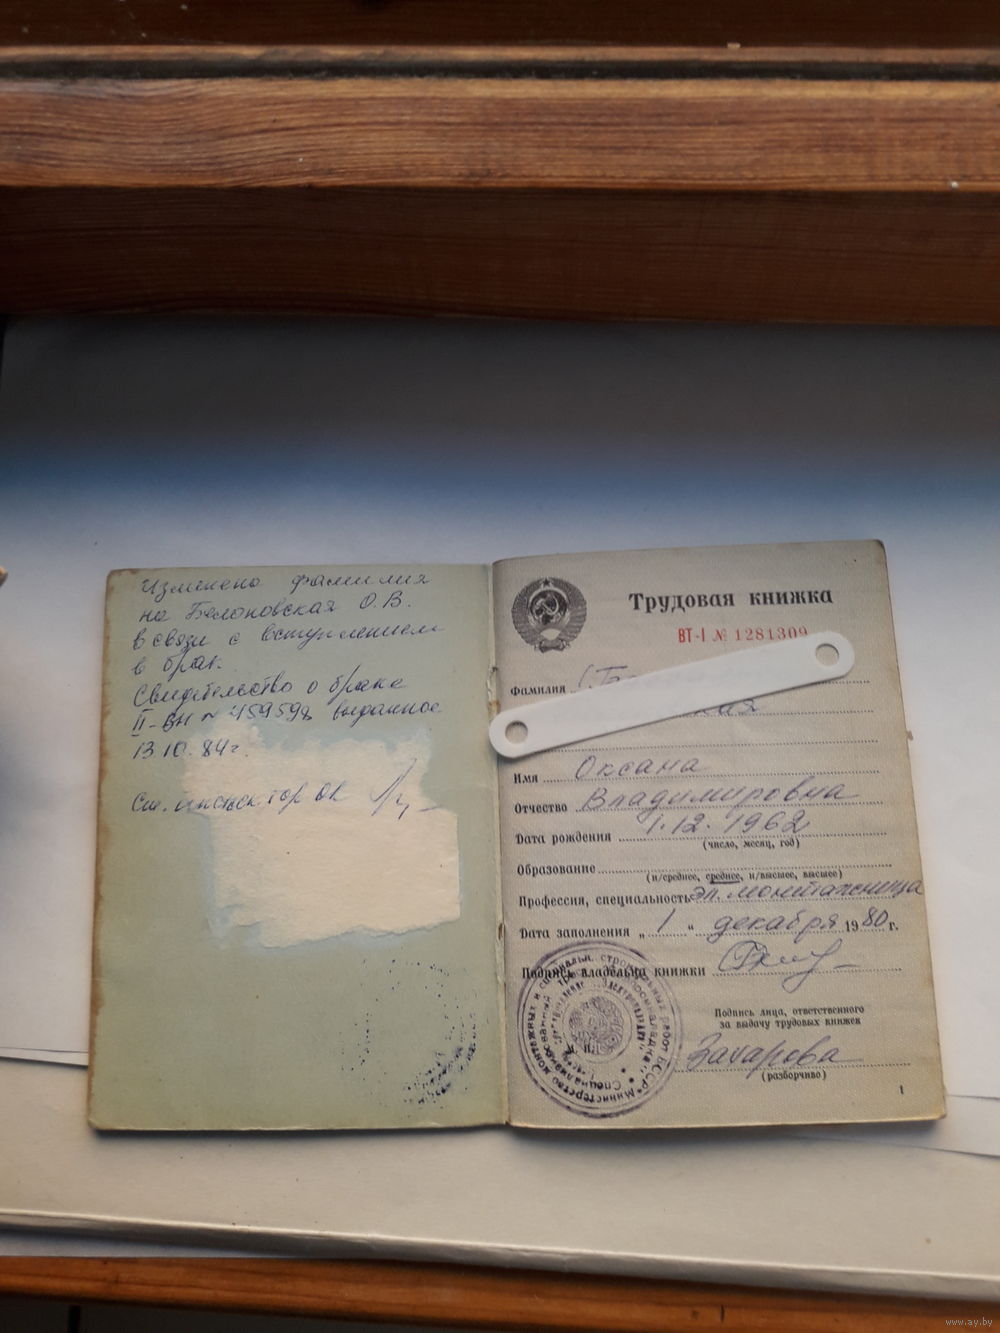 Изменена фамилия
на Белоновская О.В.
в связи с вступлением
в брак.
Свидетельство о браке
II-ВН № 459598 выданное
13.10.84г.
Ст. инспектор ОК
Трудовая книжка
ВТ-I № 1281309
Фамилия
кая
Имя Оксана
Отчество Владимировна
Дата рождения 1.12.1962
(число, месяц, год)
Образование
(н/среднее, среднее, н/высшее, высшее)
Профессия, специальность эл. монтажница
Дата заполнения „ 1 “ декабря 1980 г.
Подпись владельца книжки
Подпись лица, ответственного
за выдачу трудовых книжек
М. П.
Захарова
(разборчиво)
Министерство монтажных и специальн. строительных работ БССР
1
www.ay.by